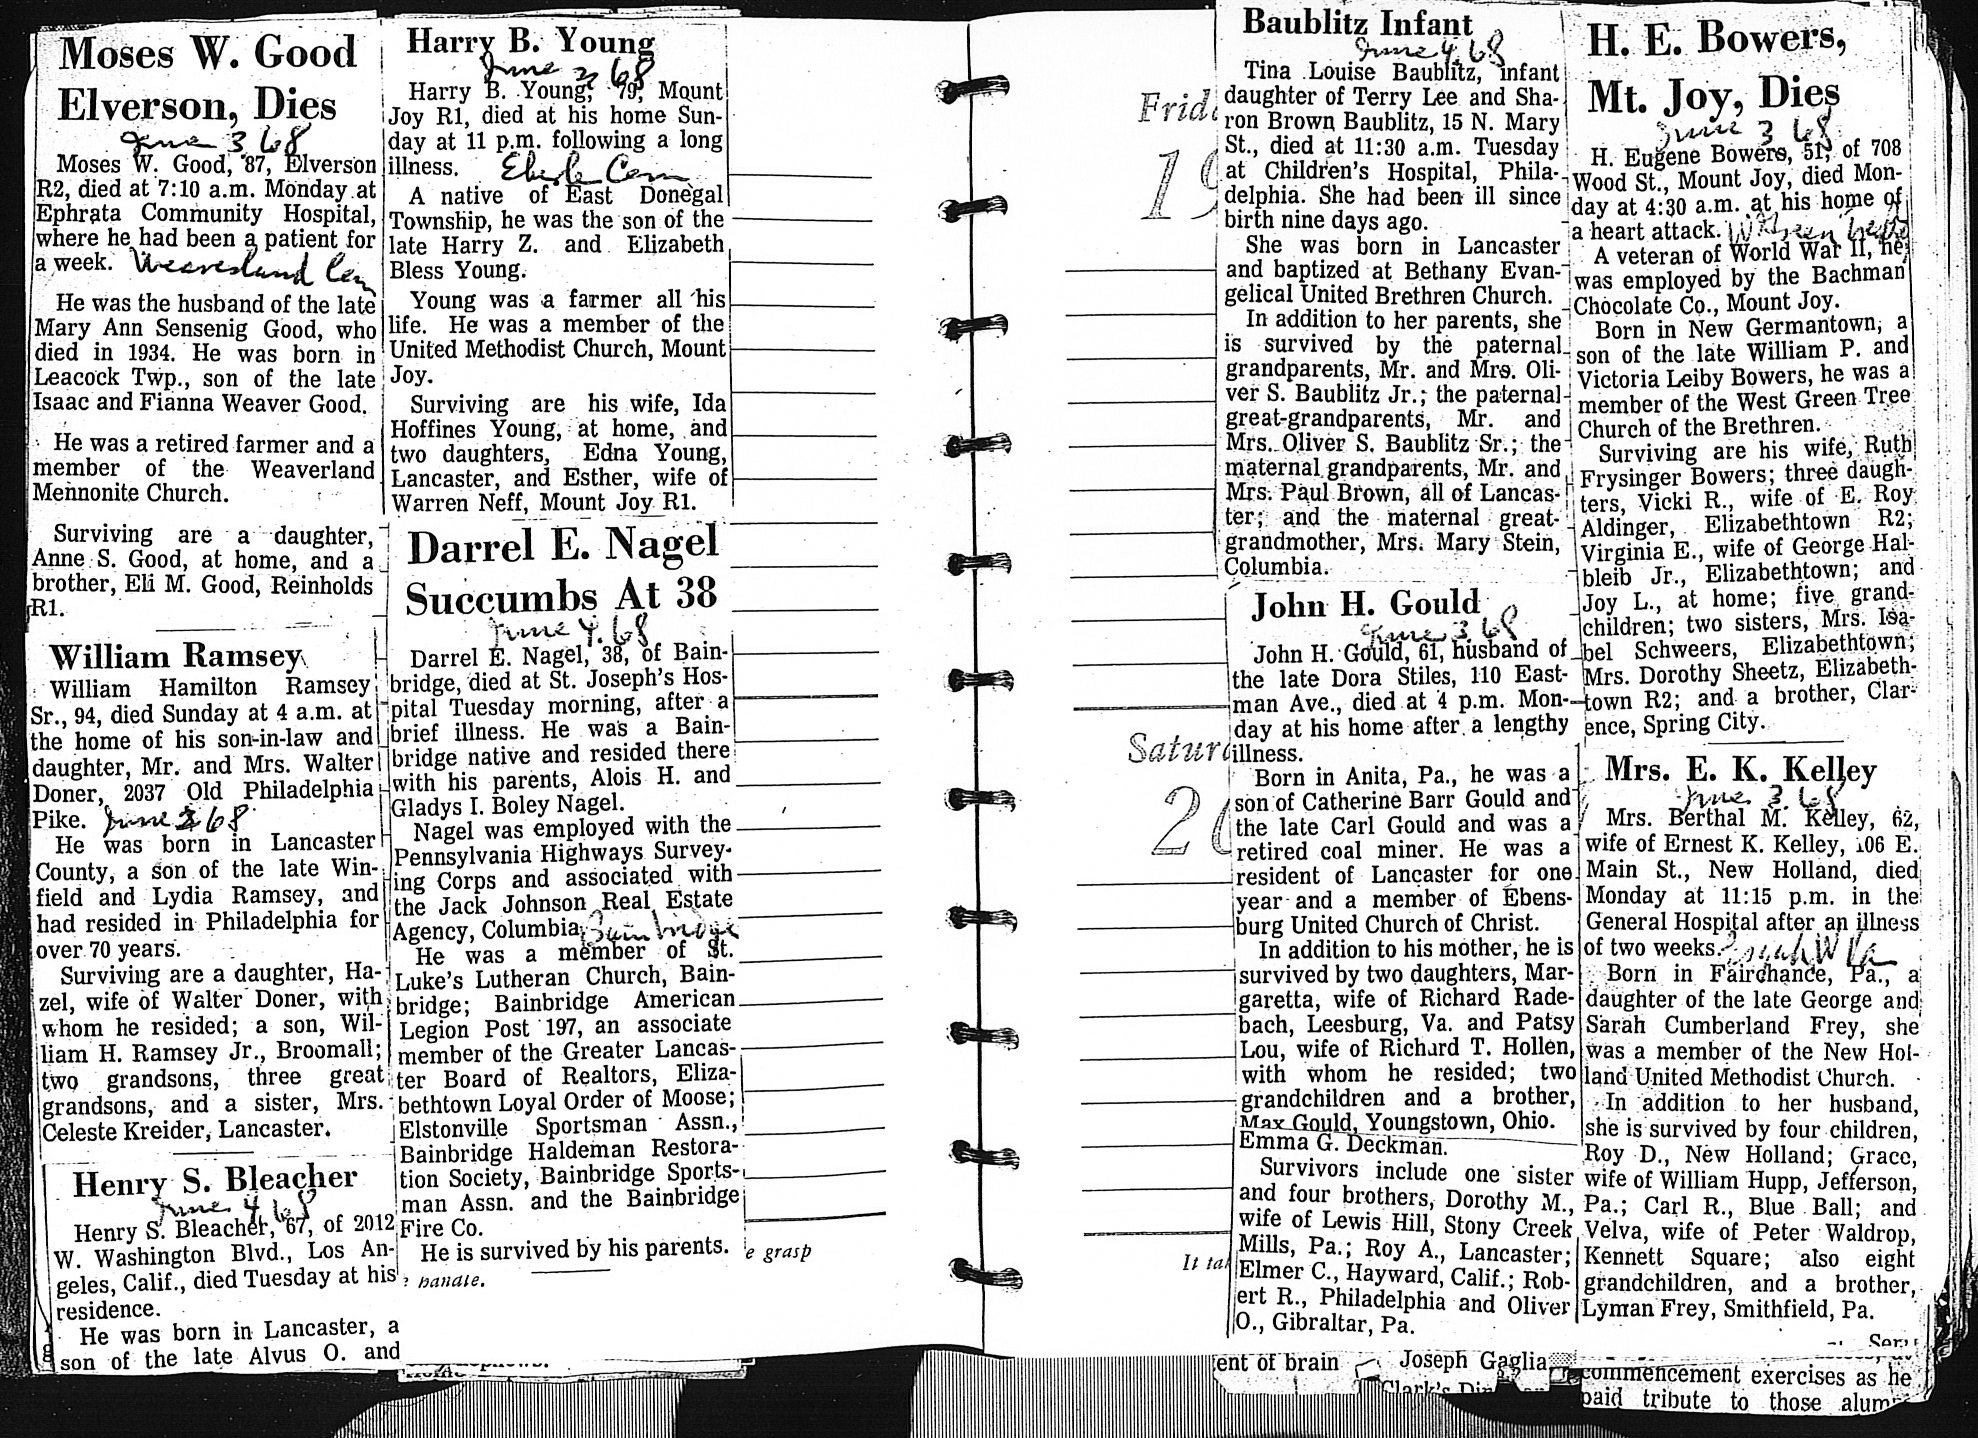 Moses W. Good
Elverson, Dies
June 3 68
Moses W. Good, 87, Elverson
R2, died at 7:10 a.m. Monday at
Ephrata Community Hospital,
where he had been a patient for
a week. Weaverland Cem
He was the husband of the late
Mary Ann Sensenig Good, who
died in 1934. He was born in
Leacock Twp., son of the late
Isaac and Fianna Weaver Good.
He was a retired farmer and a
member of the Weaverland
Mennonite Church.
Surviving are a daughter,
Anne S. Good, at home, and a
brother, Eli M. Good, Reinholds
R1.
William Ramsey
William Hamilton Ramsey
Sr., 94, died Sunday at 4 a.m. at
the home of his son-in-law and
daughter, Mr. and Mrs. Walter
Doner, 2037 Old Philadelphia
Pike. June 2 68
He was born in Lancaster
County, a son of the late Win-
field and Lydia Ramsey, and
had resided in Philadelphia for
over 70 years.
Surviving are a daughter, Ha-
zel, wife of Walter Doner, with
whom he resided; a son, Wil-
liam H. Ramsey Jr., Broomall;
two grandsons, three great
grandsons, and a sister, Mrs.
Celeste Kreider, Lancaster.
Henry S. Bleacher
June 4 68
Henry S. Bleacher, 67, of 2012
W. Washington Blvd., Los An-
geles, Calif., died Tuesday at his
residence.
He was born in Lancaster, a
son of the late Alvus O. and
Harry B. Young
June 2 68
Harry B. Young, 79, Mount
Joy R1, died at his home Sun-
day at 11 p.m. following a long
illness. Eberle Cem
A native of East Donegal
Township, he was the son of the
late Harry Z. and Elizabeth
Bless Young.
Young was a farmer all his
life. He was a member of the
United Methodist Church, Mount
Joy.
Surviving are his wife, Ida
Hoffines Young, at home, and
two daughters, Edna Young,
Lancaster, and Esther, wife of
Warren Neff, Mount Joy R1.
Darrel E. Nagel
Succumbs At 38
June 4. 68
Darrel E. Nagel, 38, of Bain-
bridge, died at St. Joseph's Hos-
pital Tuesday morning, after a
brief illness. He was a Bain-
bridge native and resided there
with his parents, Alois H. and
Gladys I. Boley Nagel.
Nagel was employed with the
Pennsylvania Highways Survey-
ing Corps and associated with
the Jack Johnson Real Estate
Agency, Columbia. Bainbridge
He was a member of St.
Luke's Lutheran Church, Bain-
bridge; Bainbridge American
Legion Post 197, an associate
member of the Greater Lancas-
ter Board of Realtors, Eliza-
bethtown Loyal Order of Moose;
Elstonville Sportsman Assn.,
Bainbridge Haldeman Restora-
tion Society, Bainbridge Sports-
man Assn. and the Bainbridge
Fire Co.
He is survived by his parents.
e grasp
Frid
19
Satur
20
It ta
Baublitz Infant
June 4. 68
Tina Louise Baublitz, infant
daughter of Terry Lee and Sha-
ron Brown Baublitz, 15 N. Mary
St., died at 11:30 a.m. Tuesday
at Children's Hospital, Phila-
delphia. She had been ill since
birth nine days ago.
She was born in Lancaster
and baptized at Bethany Evan-
gelical United Brethren Church.
In addition to her parents, she
is survived by the paternal
grandparents, Mr. and Mrs. Oli-
ver S. Baublitz Jr.; the paternal
great-grandparents, Mr. and
Mrs. Oliver S. Baublitz Sr.; the
maternal grandparents, Mr. and
Mrs. Paul Brown, all of Lancas-
ter; and the maternal great-
grandmother, Mrs. Mary Stein,
Columbia.
John H. Gould
June 3. 68
John H. Gould, 61, husband of
the late Dora Stiles, 110 East-
man Ave., died at 4 p.m. Mon-
day at his home after a lengthy
illness.
Born in Anita, Pa., he was a
son of Catherine Barr Gould and
the late Carl Gould and was a
retired coal miner. He was a
resident of Lancaster for one
year and a member of Ebens-
burg United Church of Christ.
In addition to his mother, he is
survived by two daughters, Mar-
garetta, wife of Richard Rade-
bach, Leesburg, Va. and Patsy
Lou, wife of Richard T. Hollen,
with whom he resided; two
grandchildren and a brother,
Max Gould, Youngstown, Ohio.
Emma G. Deckman.
Survivors include one sister
and four brothers, Dorothy M.,
wife of Lewis Hill, Stony Creek
Mills, Pa.; Roy A., Lancaster;
Elmer C., Hayward, Calif.; Rob-
ert R., Philadelphia and Oliver
O., Gibraltar, Pa.
ent of brain
Joseph Gaglia
H. E. Bowers,
Mt. Joy, Dies
June 3 68
H. Eugene Bowers, 51, of 708
Wood St., Mount Joy, died Mon-
day at 4:30 a.m. at his home of
a heart attack.
A veteran of World War II, he
was employed by the Bachman
Chocolate Co., Mount Joy.
Born in New Germantown, a
son of the late William P. and
Victoria Leiby Bowers, he was a
member of the West Green Tree
Church of the Brethren.
Surviving are his wife, Ruth
Frysinger Bowers; three daugh-
ters, Vicki R., wife of E. Roy
Aldinger, Elizabethtown R2;
Virginia E., wife of George Hal-
bleib Jr., Elizabethtown; and
Joy L., at home; five grand-
children; two sisters, Mrs. Isa-
bel Schweers, Elizabethtown;
Mrs. Dorothy Sheetz, Elizabeth-
town R2; and a brother, Clar-
ence, Spring City.
Mrs. E. K. Kelley
June 3. 68
Mrs. Berthal M. Kelley, 62,
wife of Ernest K. Kelley, 106 E.
Main St., New Holland, died
Monday at 11:15 p.m. in the
General Hospital after an illness
of two weeks.
Born in Fairchance, Pa., a
daughter of the late George and
Sarah Cumberland Frey, she
was a member of the New Hol-
land United Methodist Church.
In addition to her husband,
she is survived by four children,
Roy D., New Holland; Grace,
wife of William Hupp, Jefferson,
Pa.; Carl R., Blue Ball; and
Velva, wife of Peter Waldrop,
Kennett Square; also eight
grandchildren, and a brother,
Lyman Frey, Smithfield, Pa.
commencement exercises as he
paid tribute to those alum